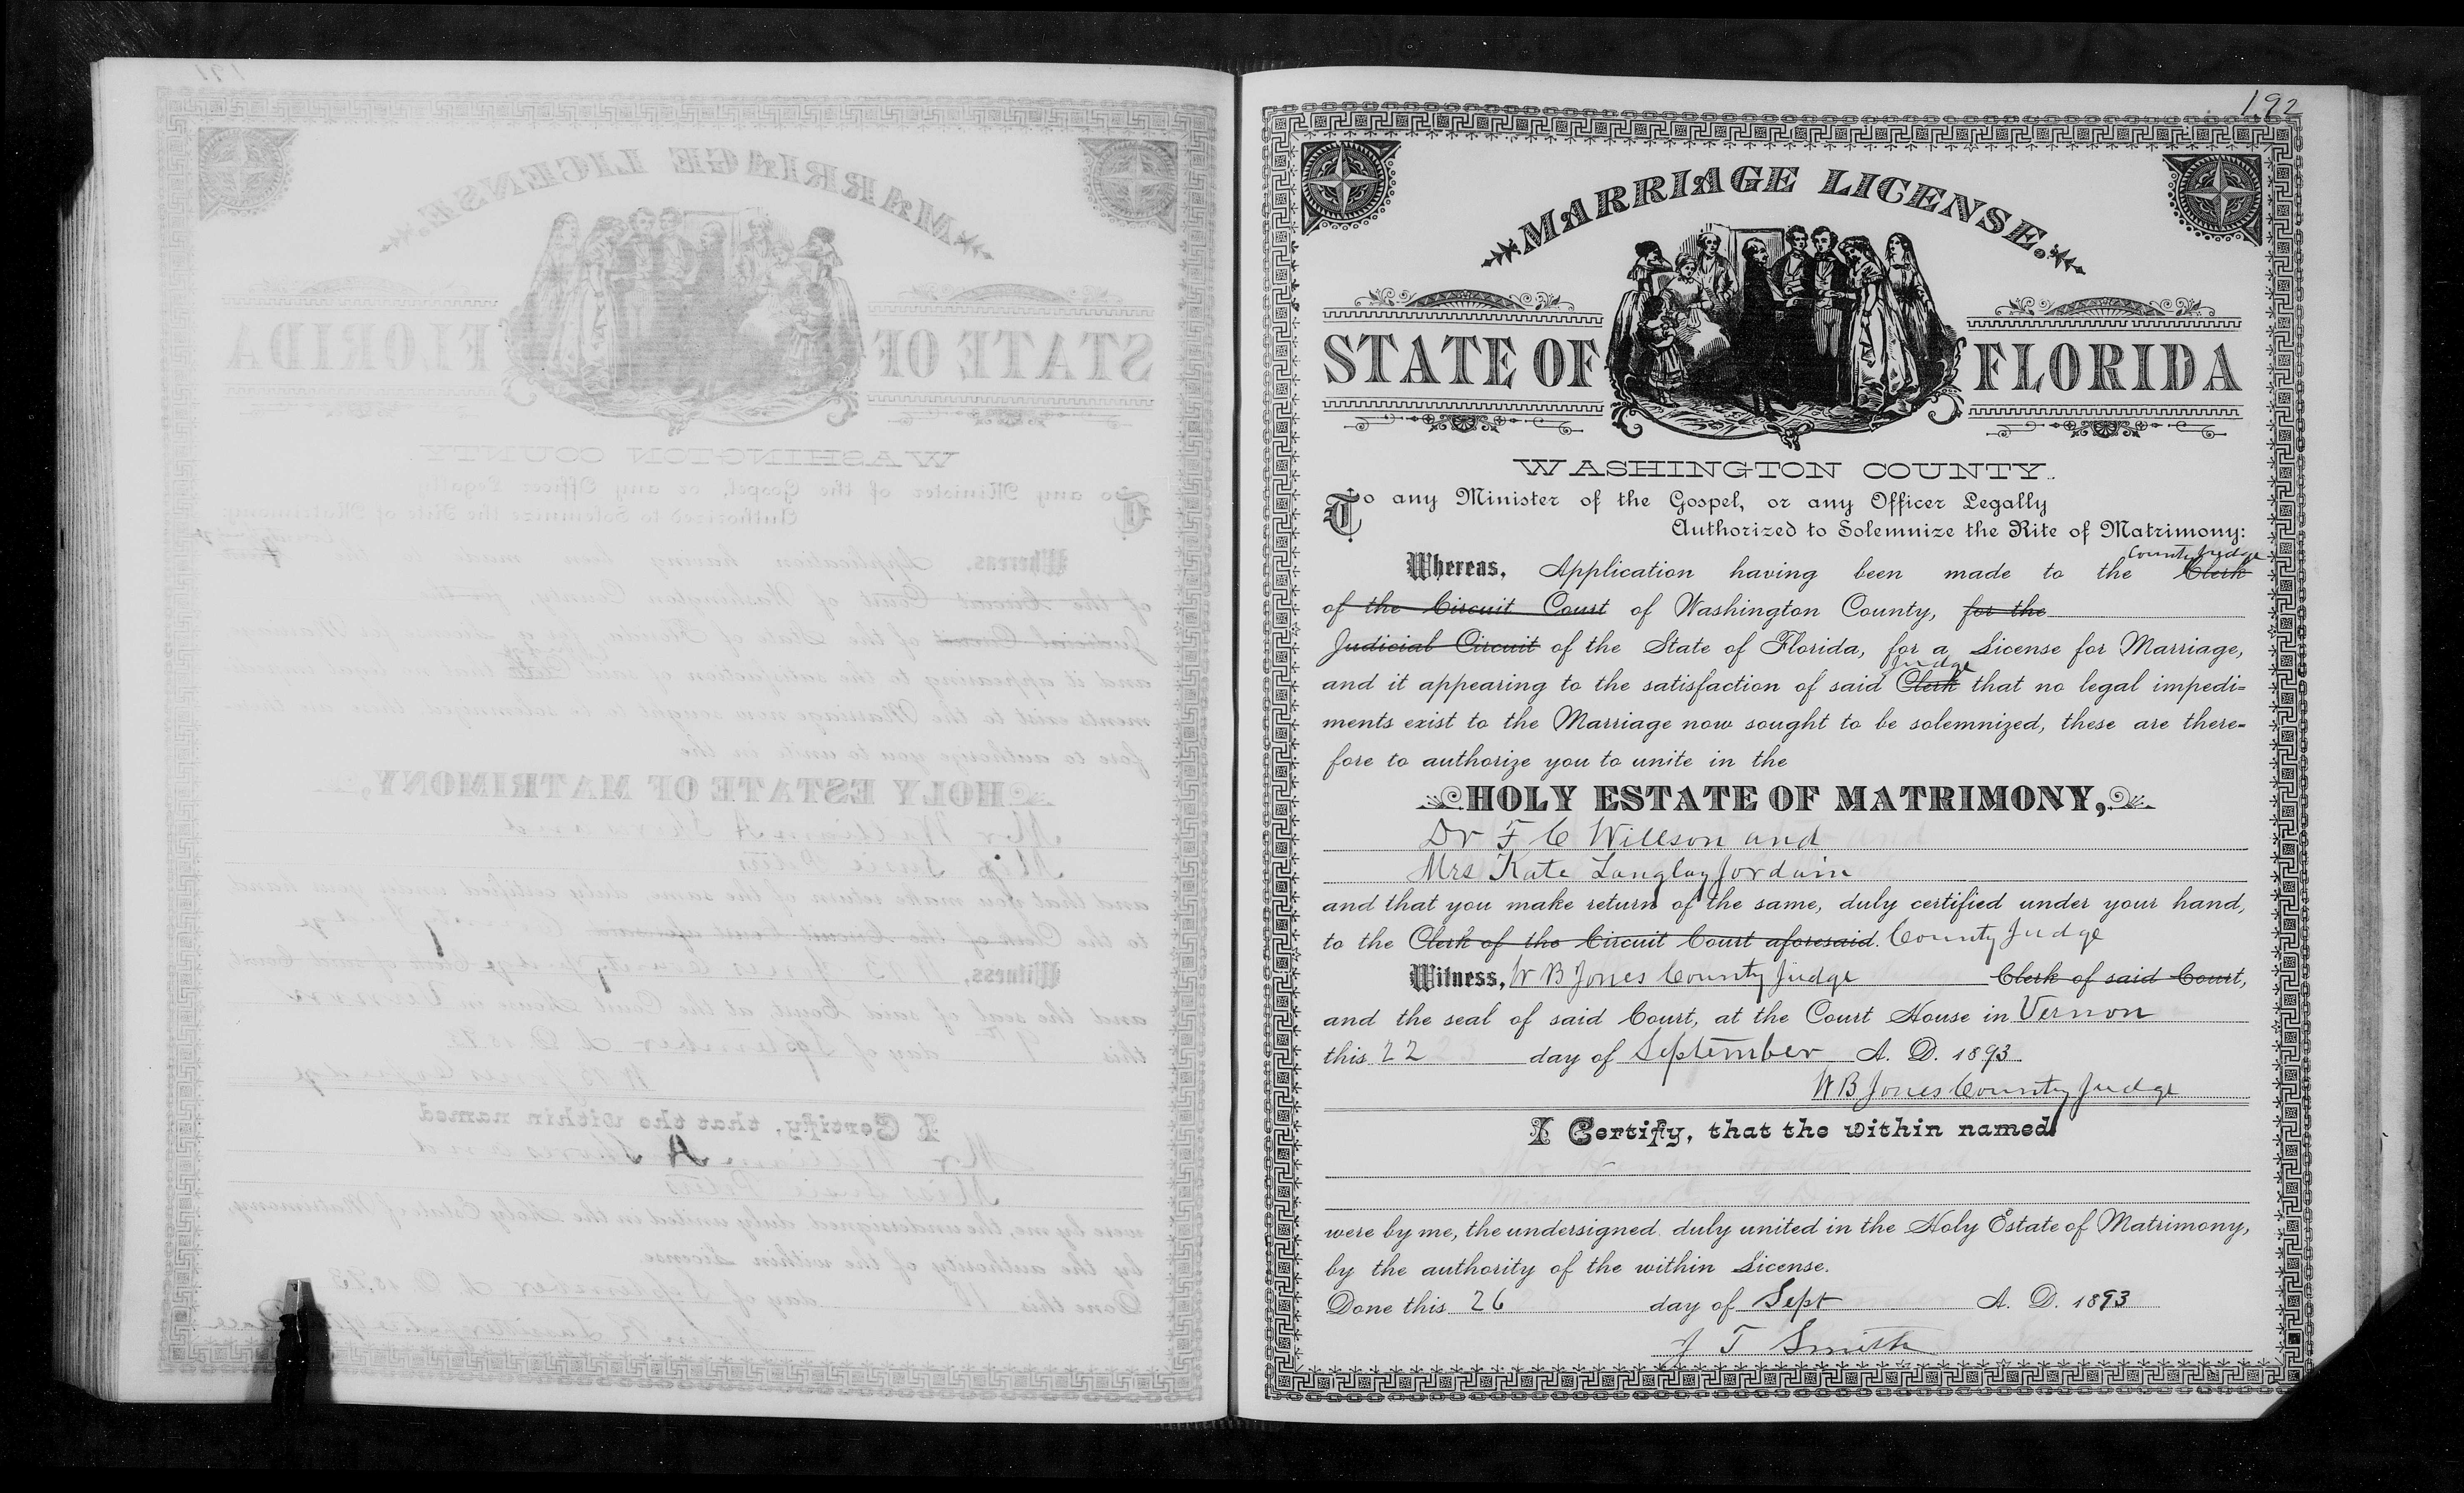 192
MARRIAGE LICENSE.
STATE OF FLORIDA
WASHINGTON COUNTY.
To any Minister of the Gospel, or any Officer Legally
Authorized to Solemnize the Rite of Matrimony:
County Judge
Whereas, Application having been made to the Clerk
of the Circuit Court of Washington County, for the
Judicial Circuit of the State of Florida, for a License for Marriage,
Judge
and it appearing to the satisfaction of said Clerk that no legal impedi=
ments exist to the Marriage now sought to be solemnized, these are there=
fore to authorize you to unite in the
HOLY ESTATE OF MATRIMONY,
Dr F C Willson and
Mrs Kate Langley Jordain
and that you make return of the same, duly certified under your hand,
to the Clerk of the Circuit Court aforesaid. County Judge
Witness, W B Jones County Judge Clerk of said Court,
and the seal of said Court, at the Court House in Vernon
this 22 day of September A. D. 1893
W B Jones County Judge
I Certify, that the within named
were by me, the undersigned duly united in the Holy Estate of Matrimony,
by the authority of the within License.
Done this 26 day of Sept A. D. 1893
J T Smith